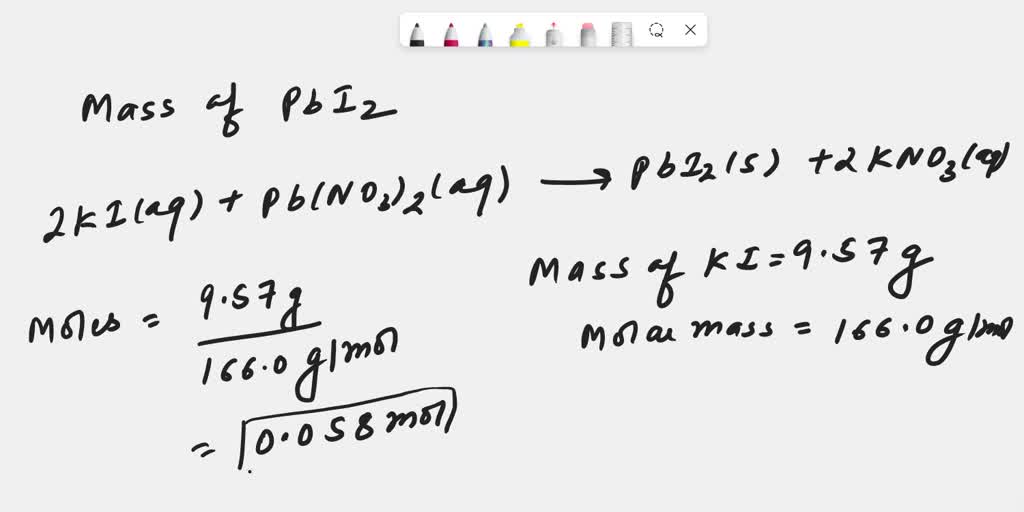 Mass of PbI2
2KI(aq) + Pb(NO3)2(aq) → PbI2(s) + 2KNO3(aq)
Mass of KI = 9.57g
Moles = 9.57g
166.0 g/mol
Molar mass = 166.0g/mol
= 0.058 mol